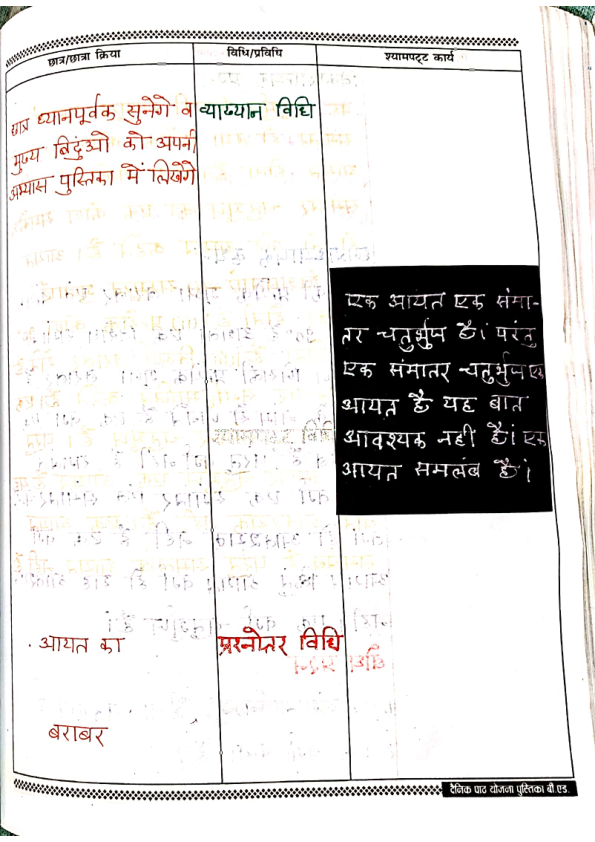 छात्र/छात्रा क्रिया
विधि/प्रविधि
श्यामपट्ट कार्य
छात्र ध्यानपूर्वक सुनेगे व
मुख्य बिदुंओ को अपनी
अभ्यास पुस्तिका में लिखेंगे
व्याख्यान विधि
एक आयत एक संमा-
तर चतुर्भुज है। परंतु
एक संमातर चतुर्भुज एक
आयत है यह बात
आवश्यक नही है। एक
आयत समलंब है।
आयत का
प्रश्नोत्तर विधि
बराबर
दैनिक पाठ योजना पुस्तिका बी.एड.